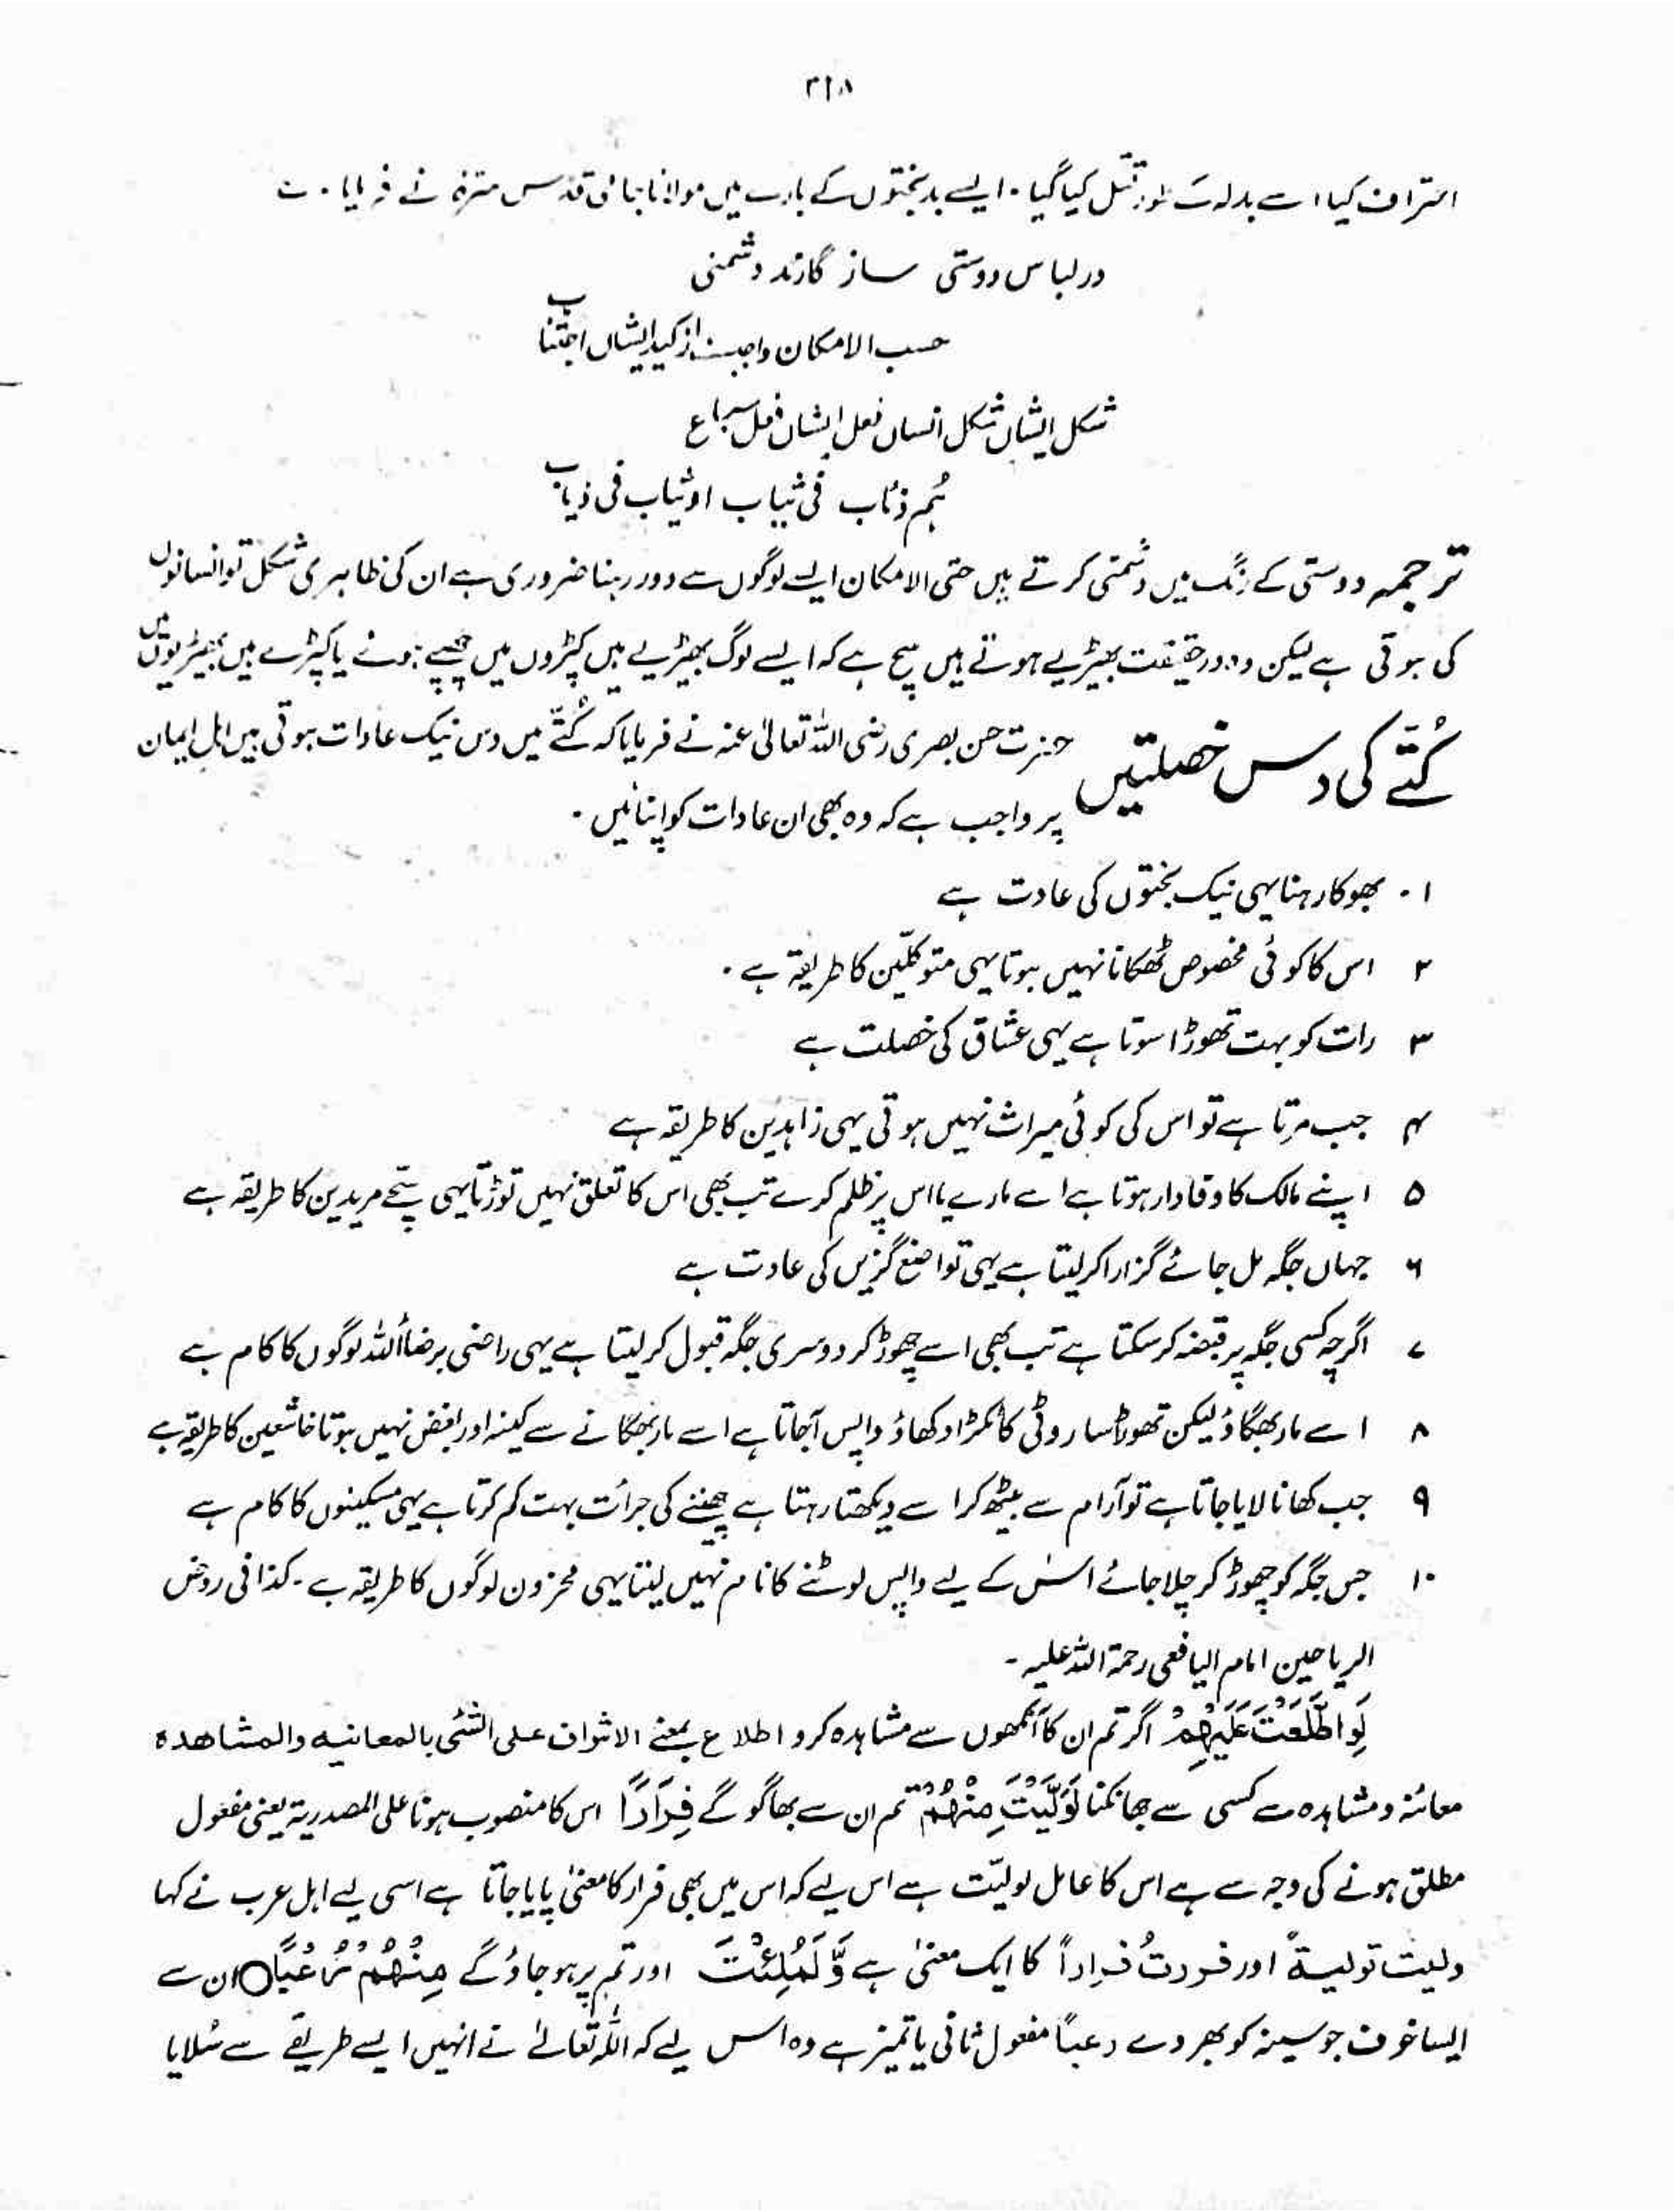 ۳۱۸
اعتراف کیا اسے بدلہ کے طور قتل کیا گیا۔ ایسے بدبختوں کے بارے میں مولانا جامی قدس سرہ نے فرمایا۔ ؎
در لباس دوستی ساز گارند دشمنی
حسب الامکان واجبست از کید ایشاں اجتناب
شکل ایشاں شکل انساں فعل ایشاں فعل سباع
ہُم ذئاب فی ثیاب او ثیاب فی ذیاب
ترجمہ دوستی کے رنگ میں دشمنی کرتے ہیں حتی الامکان ایسے لوگوں سے دور رہنا ضروری ہے ان کی ظاہری شکل تو انسانوں
کی ہوتی ہے لیکن وہ درحقیقت بھیڑیے ہوتے ہیں سچ ہے کہ ایسے لوگ بھیڑیے ہیں کپڑوں میں چھپے ہوئے یا کپڑے ہیں بھیڑیوں میں
کُتّے کی دس خصلتیں حضرت حسن بصری رضی اللہ تعالیٰ عنہ نے فرمایا کہ کُتّے میں دس نیک عادات ہوتی ہیں اہل ایمان
پر واجب ہے کہ وہ بھی ان عادات کو اپنائیں۔
۱۔ بھوکا رہنا یہی نیک بختوں کی عادت ہے
۲ اس کا کوئی مخصوص ٹھکانا نہیں ہوتا یہی متوکلّین کا طریقہ ہے۔
۳ رات کو بہت تھوڑا سوتا ہے یہی عشاق کی خصلت ہے
۴ جب مرتا ہے تو اس کی کوئی میراث نہیں ہوتی یہی زاہدین کا طریقہ ہے
۵ اپنے مالک کا وفادار ہوتا ہے اسے مارے یا اس پر ظلم کرے تب بھی اس کا تعلق نہیں توڑتا یہی سچّے مریدین کا طریقہ ہے
۶ جہاں جگہ مل جائے گزارا کر لیتا ہے یہی تواضع گزیں کی عادت ہے
۷ اگرچہ کسی جگہ پر قبضہ کر سکتا ہے تب بھی اسے چھوڑ کر دوسری جگہ قبول کر لیتا ہے یہی راضی برضأ اللہ لوگوں کا کام ہے
۸ اسے مار بھگاؤ لیکن تھوڑا سا روٹی کا ٹکڑا دکھاؤ واپس آ جاتا ہے اسے مار بھگانے سے کینہ اور بغض نہیں ہوتا خاشعین کا طریقہ ہے
۹ جب کھانا لایا جاتا ہے تو آرام سے بیٹھ کر اسے دیکھتا رہتا ہے چھیننے کی جرأت بہت کم کرتا ہے یہی مسکینوں کا کام ہے
۱۰ جس جگہ کو چھوڑ کر چلا جائے اس کے لیے واپس لوٹنے کا نام نہیں لیتا یہی محزون لوگوں کا طریقہ ہے۔ کذا فی روض
الریاحین امام الیافعی رحمۃ اللہ علیہ۔
لَوِ اطَّلَعْتَ عَلَيْهِمْ اگر تم ان کا آنکھوں سے مشاہدہ کرو اطلاع بمعنے الاشراف علی الشئی بالمعانیہ والمشاھدہ
معائنہ و مشاہدہ سے کسی سے جھانکنا لَوَلَّيْتَ مِنْهُمْ تم ان سے بھاگو گے فِرَارًا اس کا منصوب ہونا علی المصدریۃ یعنی مفعول
مطلق ہونے کی وجہ سے ہے اس کا عامل لولیّت ہے اس لیے کہ اس میں بھی فرار کا معنیٰ پایا جاتا ہے اسی لیے اہل عرب نے کہا
ولیت تولیۃً اور فررتُ فراراً کا ایک معنیٰ ہے وَّ لَمُلِئْتَ اور تم پر ہو جاؤ گے مِنْهُمْ رُعْبًا○ ان سے
ایسا خوف جو سینہ کو بھر دے رعباً مفعول ثانی یا تمیز ہے وہ اس لیے کہ اللہ تعالےٰ نے انہیں ایسے طریقے سے سُلایا